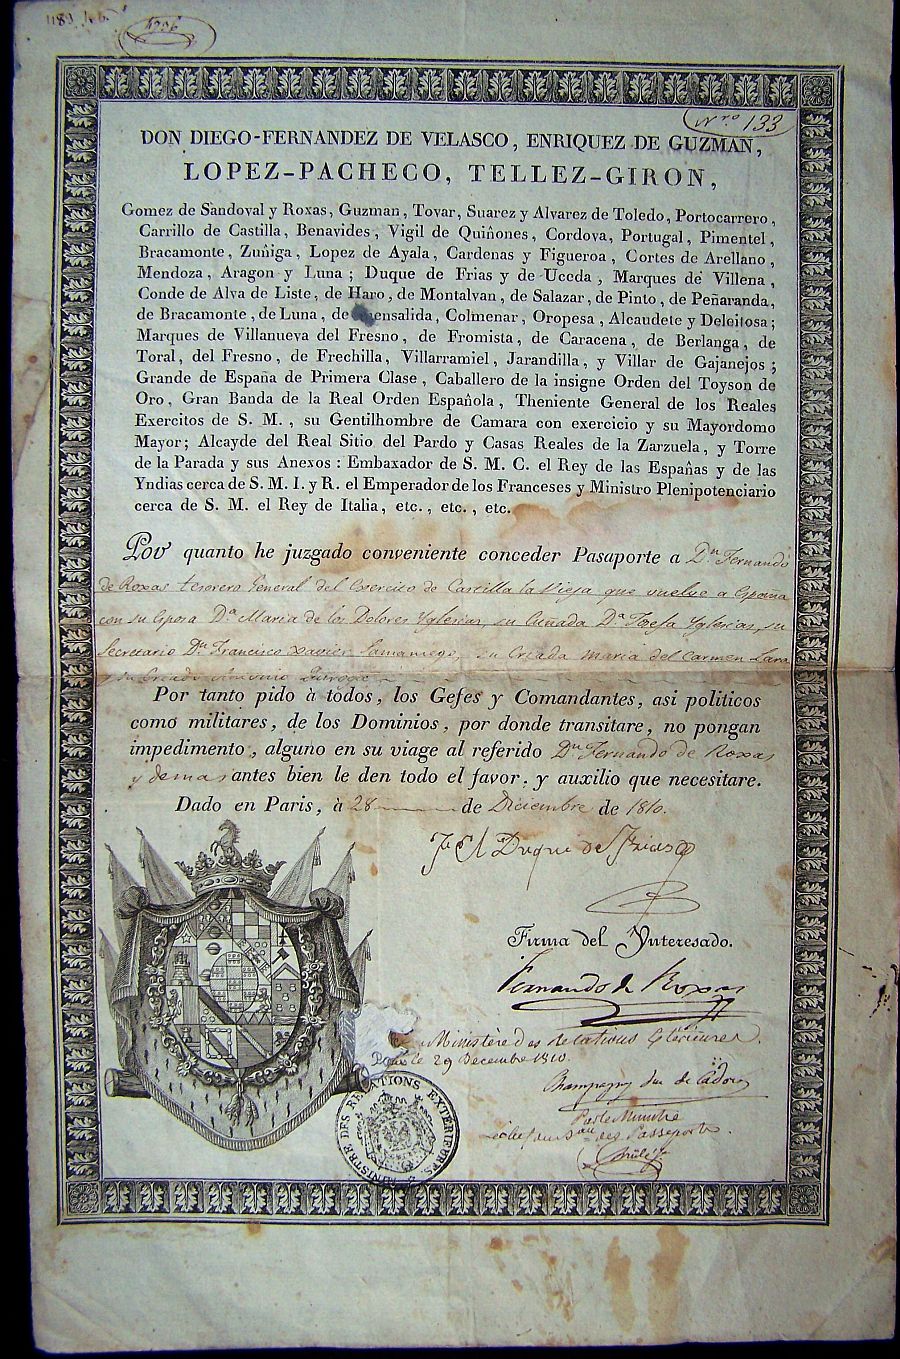 4206
Nro 133
DON DIEGO-FERNANDEZ DE VELASCO, ENRIQUEZ DE GUZMAN,
LOPEZ-PACHECO, TELLEZ-GIRON,
Gomez de Sandoval y Roxas, Guzman, Tovar, Suarez y Alvarez de Toledo, Portocarrero,
Carrillo de Castilla, Benavides, Vigil de Quiñones, Cordova, Portugal, Pimentel,
Bracamonte, Zuñiga, Lopez de Ayala, Cardenas y Figueroa, Cortes de Arellano,
Mendoza, Aragon y Luna; Duque de Frias y de Uceda, Marques de Villena,
Conde de Alva de Liste, de Haro, de Montalvan, de Salazar, de Pinto, de Peñaranda,
de Bracamonte, de Luna, de ensalida, Colmenar, Oropesa, Alcaudete y Deleitosa;
Marques de Villanueva del Fresno, de Fromista, de Caracena, de Berlanga, de
Toral, del Fresno, de Frechilla, Villarramiel, Jarandilla, y Villar de Gajanejos;
Grande de España de Primera Clase, Caballero de la insigne Orden del Toyson de
Oro, Gran Banda de la Real Orden Española, Theniente General de los Reales
Exercitos de S. M., su Gentilhombre de Camara con exercicio y su Mayordomo
Mayor; Alcayde del Real Sitio del Pardo y Casas Reales de la Zarzuela, y Torre
de la Parada y sus Anexos: Embaxador de S. M. C. el Rey de las Españas y de las
Yndias cerca de S. M. I. y R. el Emperador de los Franceses y Ministro Plenipotenciario
cerca de S. M. el Rey de Italia, etc., etc., etc.
Por quanto he juzgado conveniente conceder Pasaporte a Dn. Fernando
de Roxas tesorero General del Exercito de Castilla la Vieja que vuelve a España
con su Esposa Da. Maria de los Dolores Yglesias, su Cuñada Da. Josefa Yglesias, su
Secretario Dn. Francisco Xavier Samaniego, su Criada Maria del Carmen Lara
y su Criado Antonio
Por tanto pido à todos, los Gefes y Comandantes, asi politicos
como militares, de los Dominios, por donde transitare, no pongan
impedimento, alguno en su viage al referido Dn. Fernando de Roxas
y demas antes bien le den todo el favor, y auxilio que necesitare.
Dado en Paris, à 28 de Diciembre de 1810.
El Duque de Frias
Firma del Ynteresado.
Fernando de Roxas
Ministère des Relations Extérieures.
le 29 Decembre 1810.
Champagny duc de Cadore
Par le Ministre
Le chef du Bau des Passeports.
MINISTRE DES RELATIONS EXTERIEURES.